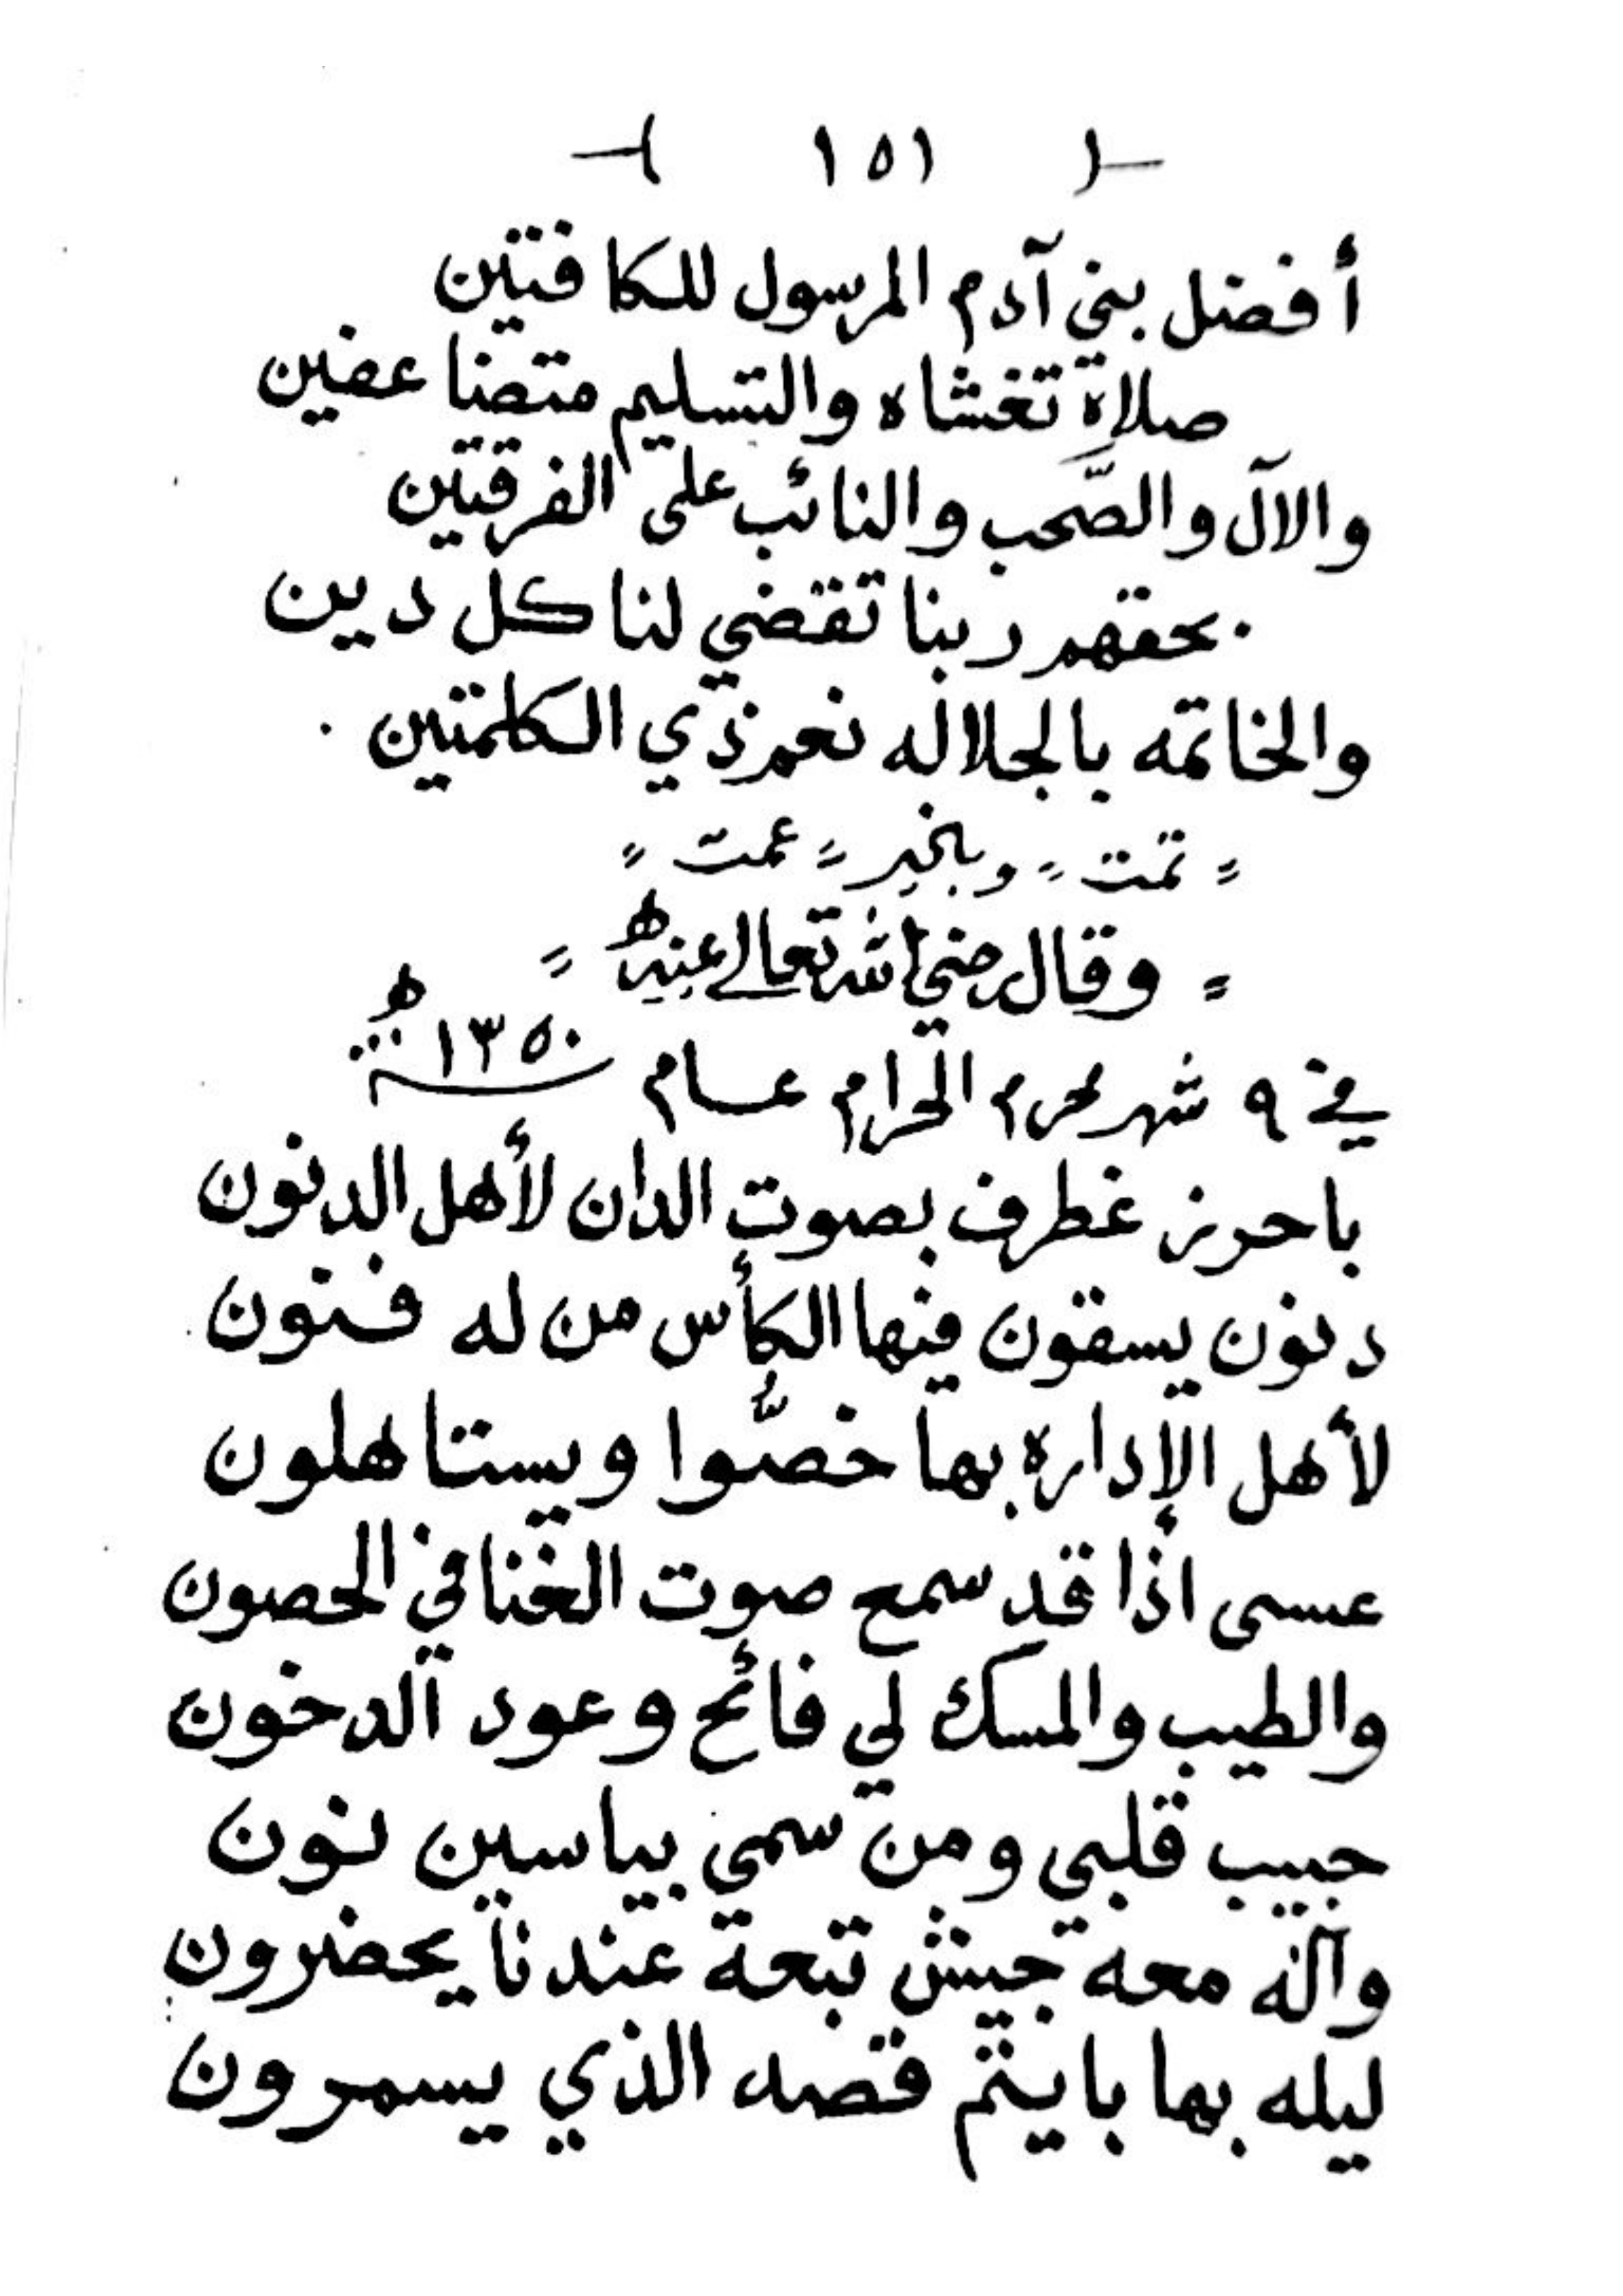 ( ١٥١ )
أفضل بني آدم المرسول للكافتين
صلاة تغشاه والتسليم متضاعفين
والآل والصّحب والنائب على الفرقتين
بحقهم ربنا تقضي لنا كل دين
والخاتمه بالجلاله نعم ذي الكلمتين
= تمت = وبالخير = عمت =
= وقال رضي الله تعالى عنه =
في ٩ شهر محرم الحرام عام ١٣٥٠ هـ
باحريز غطرف بصوت الدان لأهل الدنون
دنون يسقون منها الكأس من له فنون
لأهل الإداره بها خصُّوا ويستاهلون
عسى اذا قد سمع صوت الغنا في الحصون
والطيب والمسك لي فائح وعود الدخون
حبيب قلبي ومن سمي بياسين نون
وآله معه جيش تبعة عندنا يحضرون
ليله بها بايتم قصد الذي يسمرون